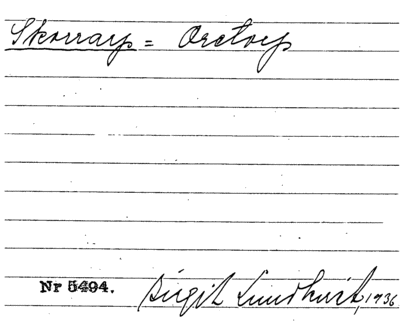 Skorrarp = Oretorp
Nr 5494. Birgit Lundhwist, 1936